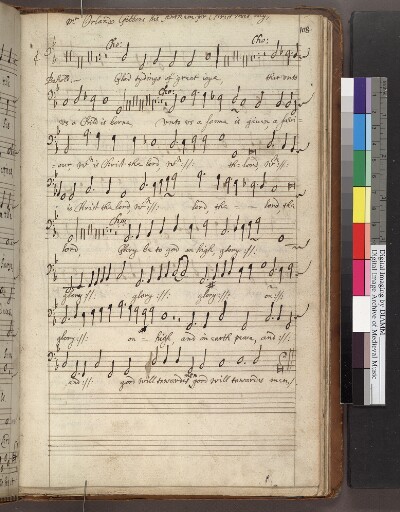 mr Orlando Gibbons his Anthem for Christ mas day.
108
Cho: Cho:
Behold:— Glad tydings of great ioye that unto
Cho:
us a Child is borne unto us a sonne is given a savi-
our wch is Christ the lord wch :||: the lord, wch :||:
is Christ the lord, wch :||: lord, the — lord the
Cho:
lord Glory be to god on high, glory :||:
glory :||: glory :||: glory :||: on :||:
glory :||: on — high, and in earth peace, and :||:
and :||: good will towardes men good will towardes men,
Digital Imaging by DIAMM
Digital Image Archive of Medieval Music